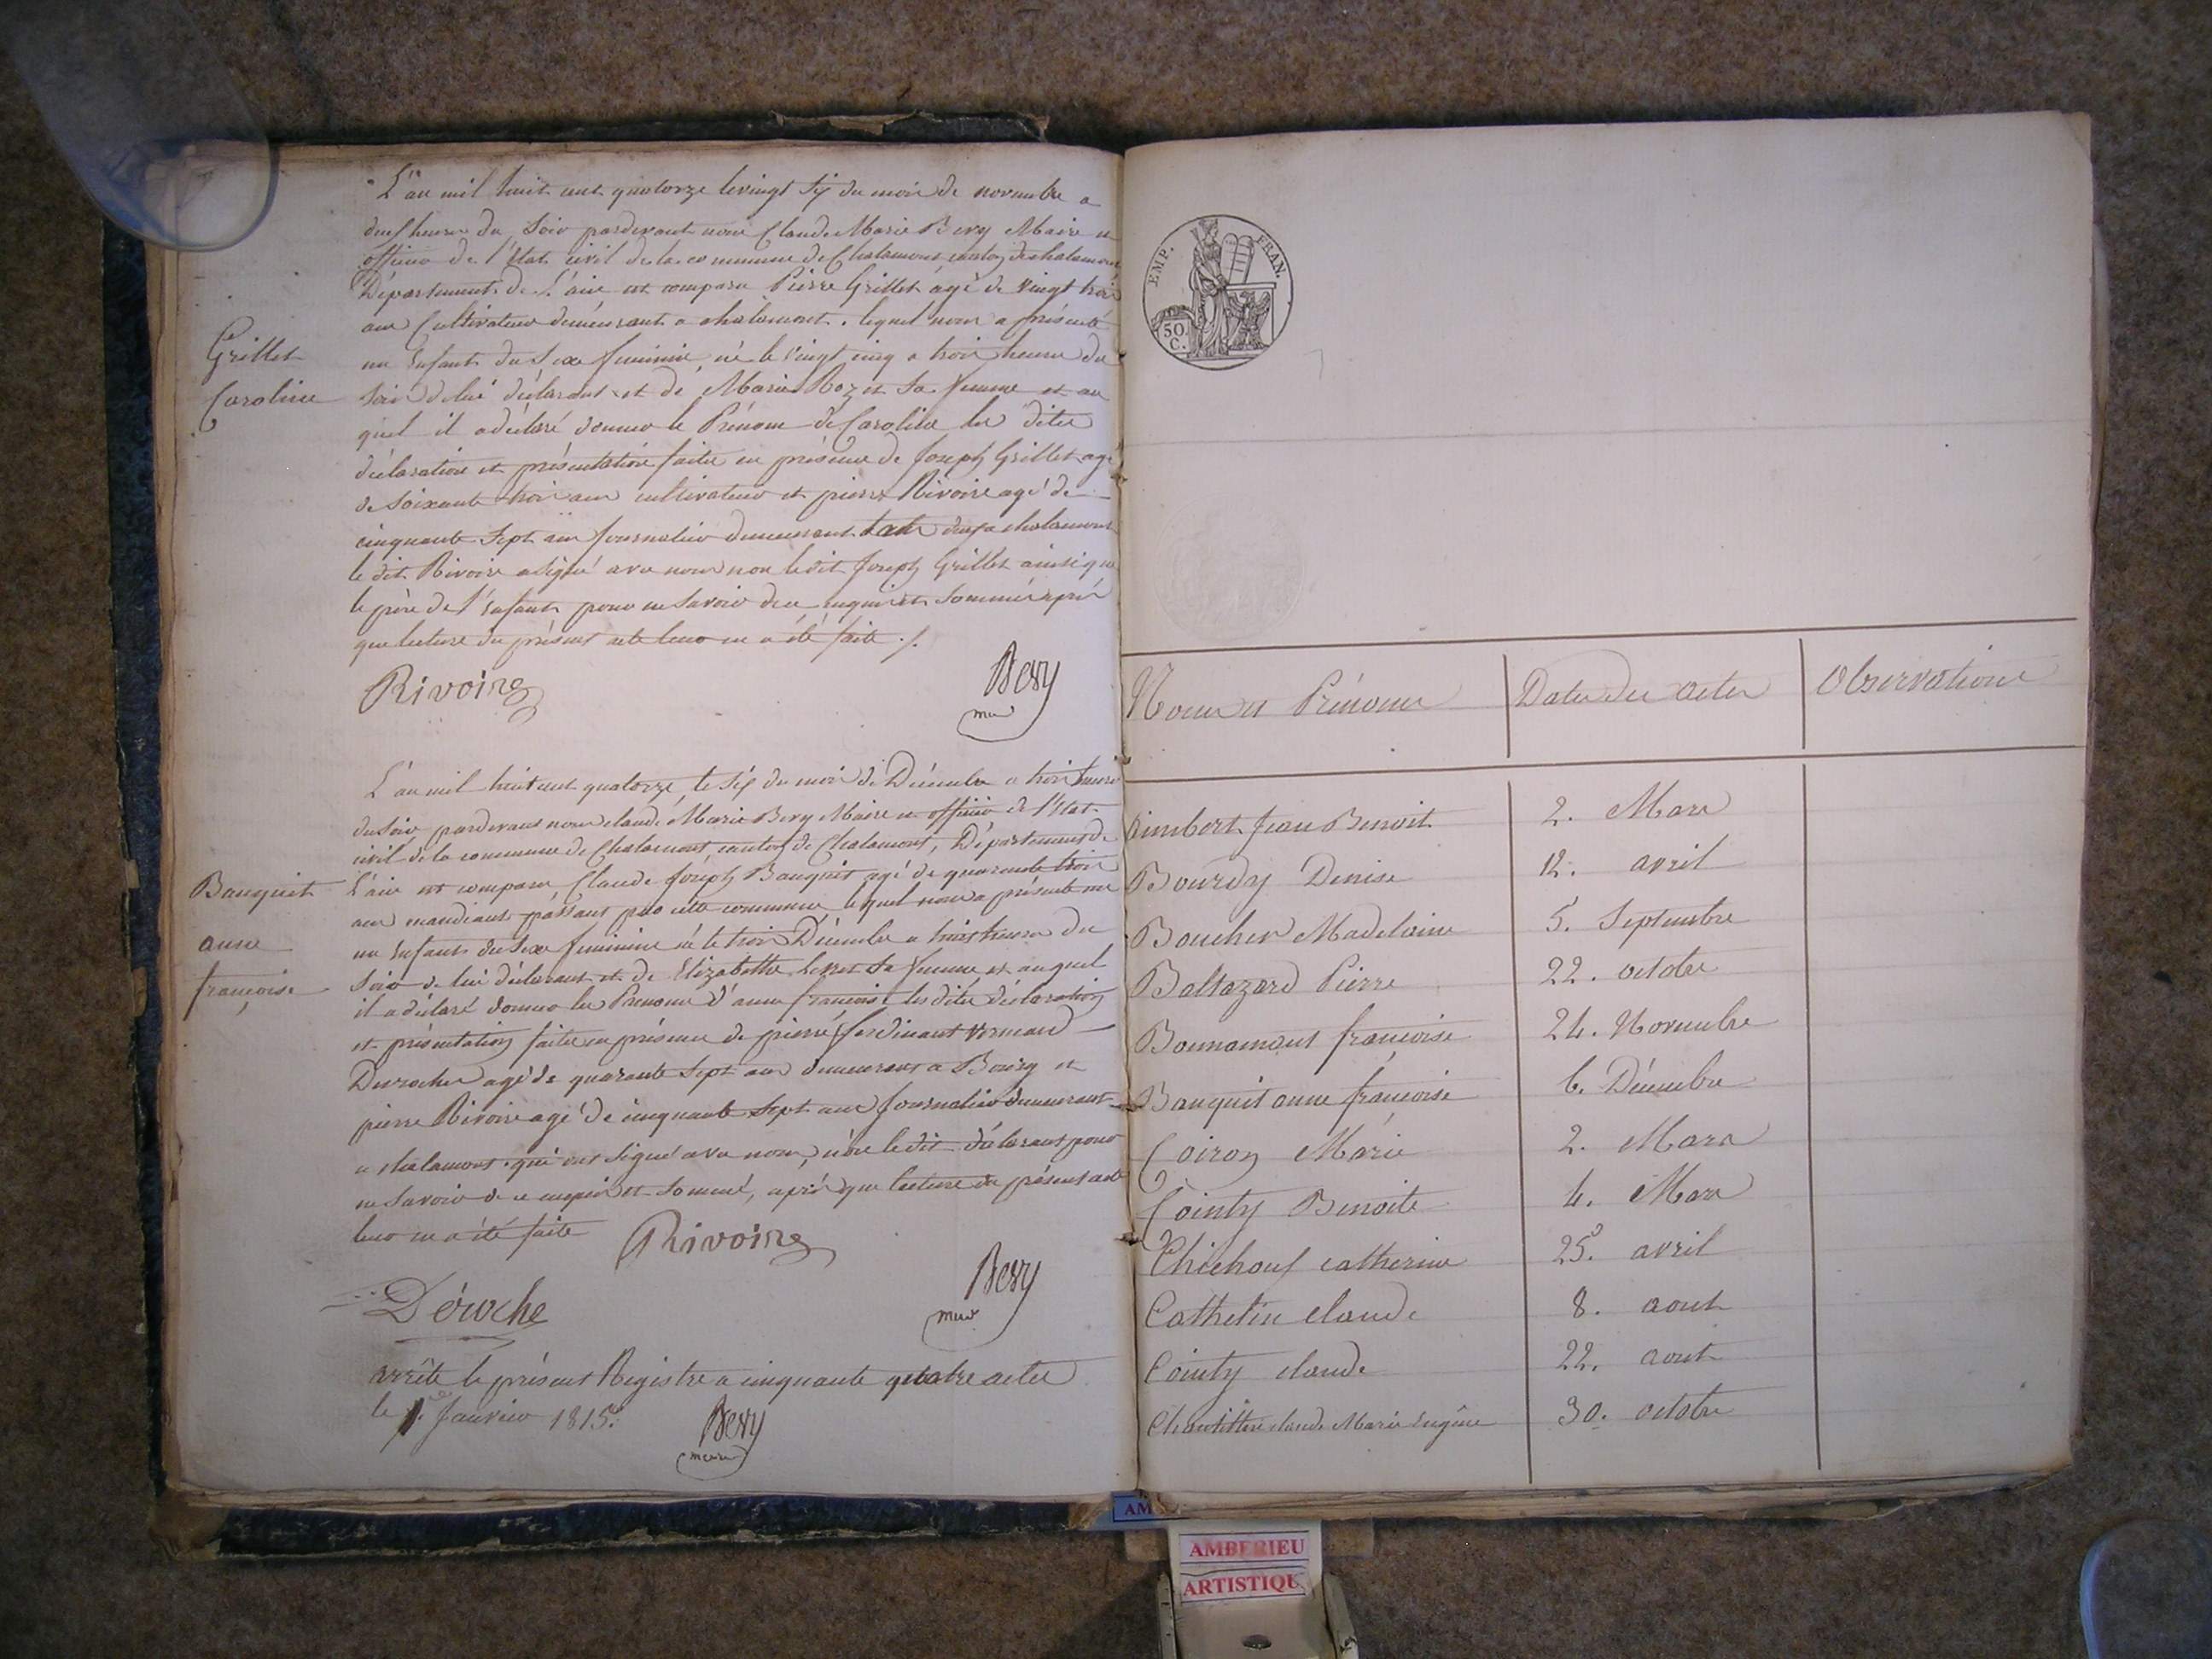 L'an mil huit cent quatorze le vingt six du mois de novembre a
deux heures du Soir pardevant nous Claude Marie Bery Maire et
officier de l'Etat civil de la commune de Chalamont canton de chalamont
Département de L'ain est comparu Pierre Grillet agé de vingt trois
ans Cultivateur demeurant a chalamont. lequel nous a présenté
Grillet
un Enfant du Sexe feminin, né le vingt cinq a trois heures du
Caroline
Soir de lui déclarant et de Marie Rozet Sa femme et au
quel il a déclaré donner le Prénom de Caroline les dites
déclaration et présentation faites en présence de Joseph Grillet agé
de Soixante trois ans cultivateur et pierre Rivoire agé de
cinquante Sept ans journalier demeurant deux a chalamont
le dit Rivoire a signé avec nous non le dit Joseph Grillet ainsi que
le père de l'Enfant pour ne Savoir de ce enquis et Sommé après
que lecture du présent acte leur en a été faite ./.
Rivoire
Bery
L'an mil huit cent quatorze, le six du mois de Décembre a trois heures
du Soir pardevant nous claude Marie Bery Maire et officier de l'Etat
civil de la commune de Chalamont, canton de Chalamont, Département de
Bauquit
L'ain est comparu Claude Joseph Bauquit agé de quarante trois
ans mandiant passant par cette commune lequel nous a présenté
anne
un Enfant du Sexe feminin né le trois Décembre a trois heures du
françoise
Soir de lui déclarant et de Elizabeth Sa femme et auquel
il a déclaré donner les Prenoms d'anne françoise les dites déclaration
et présentation faites en présence de pierre ferdinant
agé de quarante Sept ans demeurant a Bourg et
pierre Rivoire agé de cinquante Sept ans journalier demeurant
a chalamont. qui ont Signé avec nous, non le dit déclarant pour
ne Savoir de ce enquis et Sommé, après que lecture du présent acte
leur en a été faite
Rivoire
Bery
Déroche
arrêté le présent Registre a cinquante quatre actes
le 1. Janvier 1815.
Bery
EMP. FRAN.
50
C.
Noms et Prénoms Dates des actes Observations
aimbert Jean Benoit 2. Mars
Bourdy Denise 12. avril
Boucher Madelaine 5. Septembre
Baltazard Pierre 22. octobre
Bonnamont françoise 24. Novembre
Bauquit anne françoise 6. Décembre
Coiron Marie 2. Mars
Cointy Benoite 4. Mars
catherine 25. avril
Cathelin claude 8. aout
Cointy claude 22. aout
claude Marie Eugène 30. octobre
AM
AMBERIEU
ARTISTIQUE